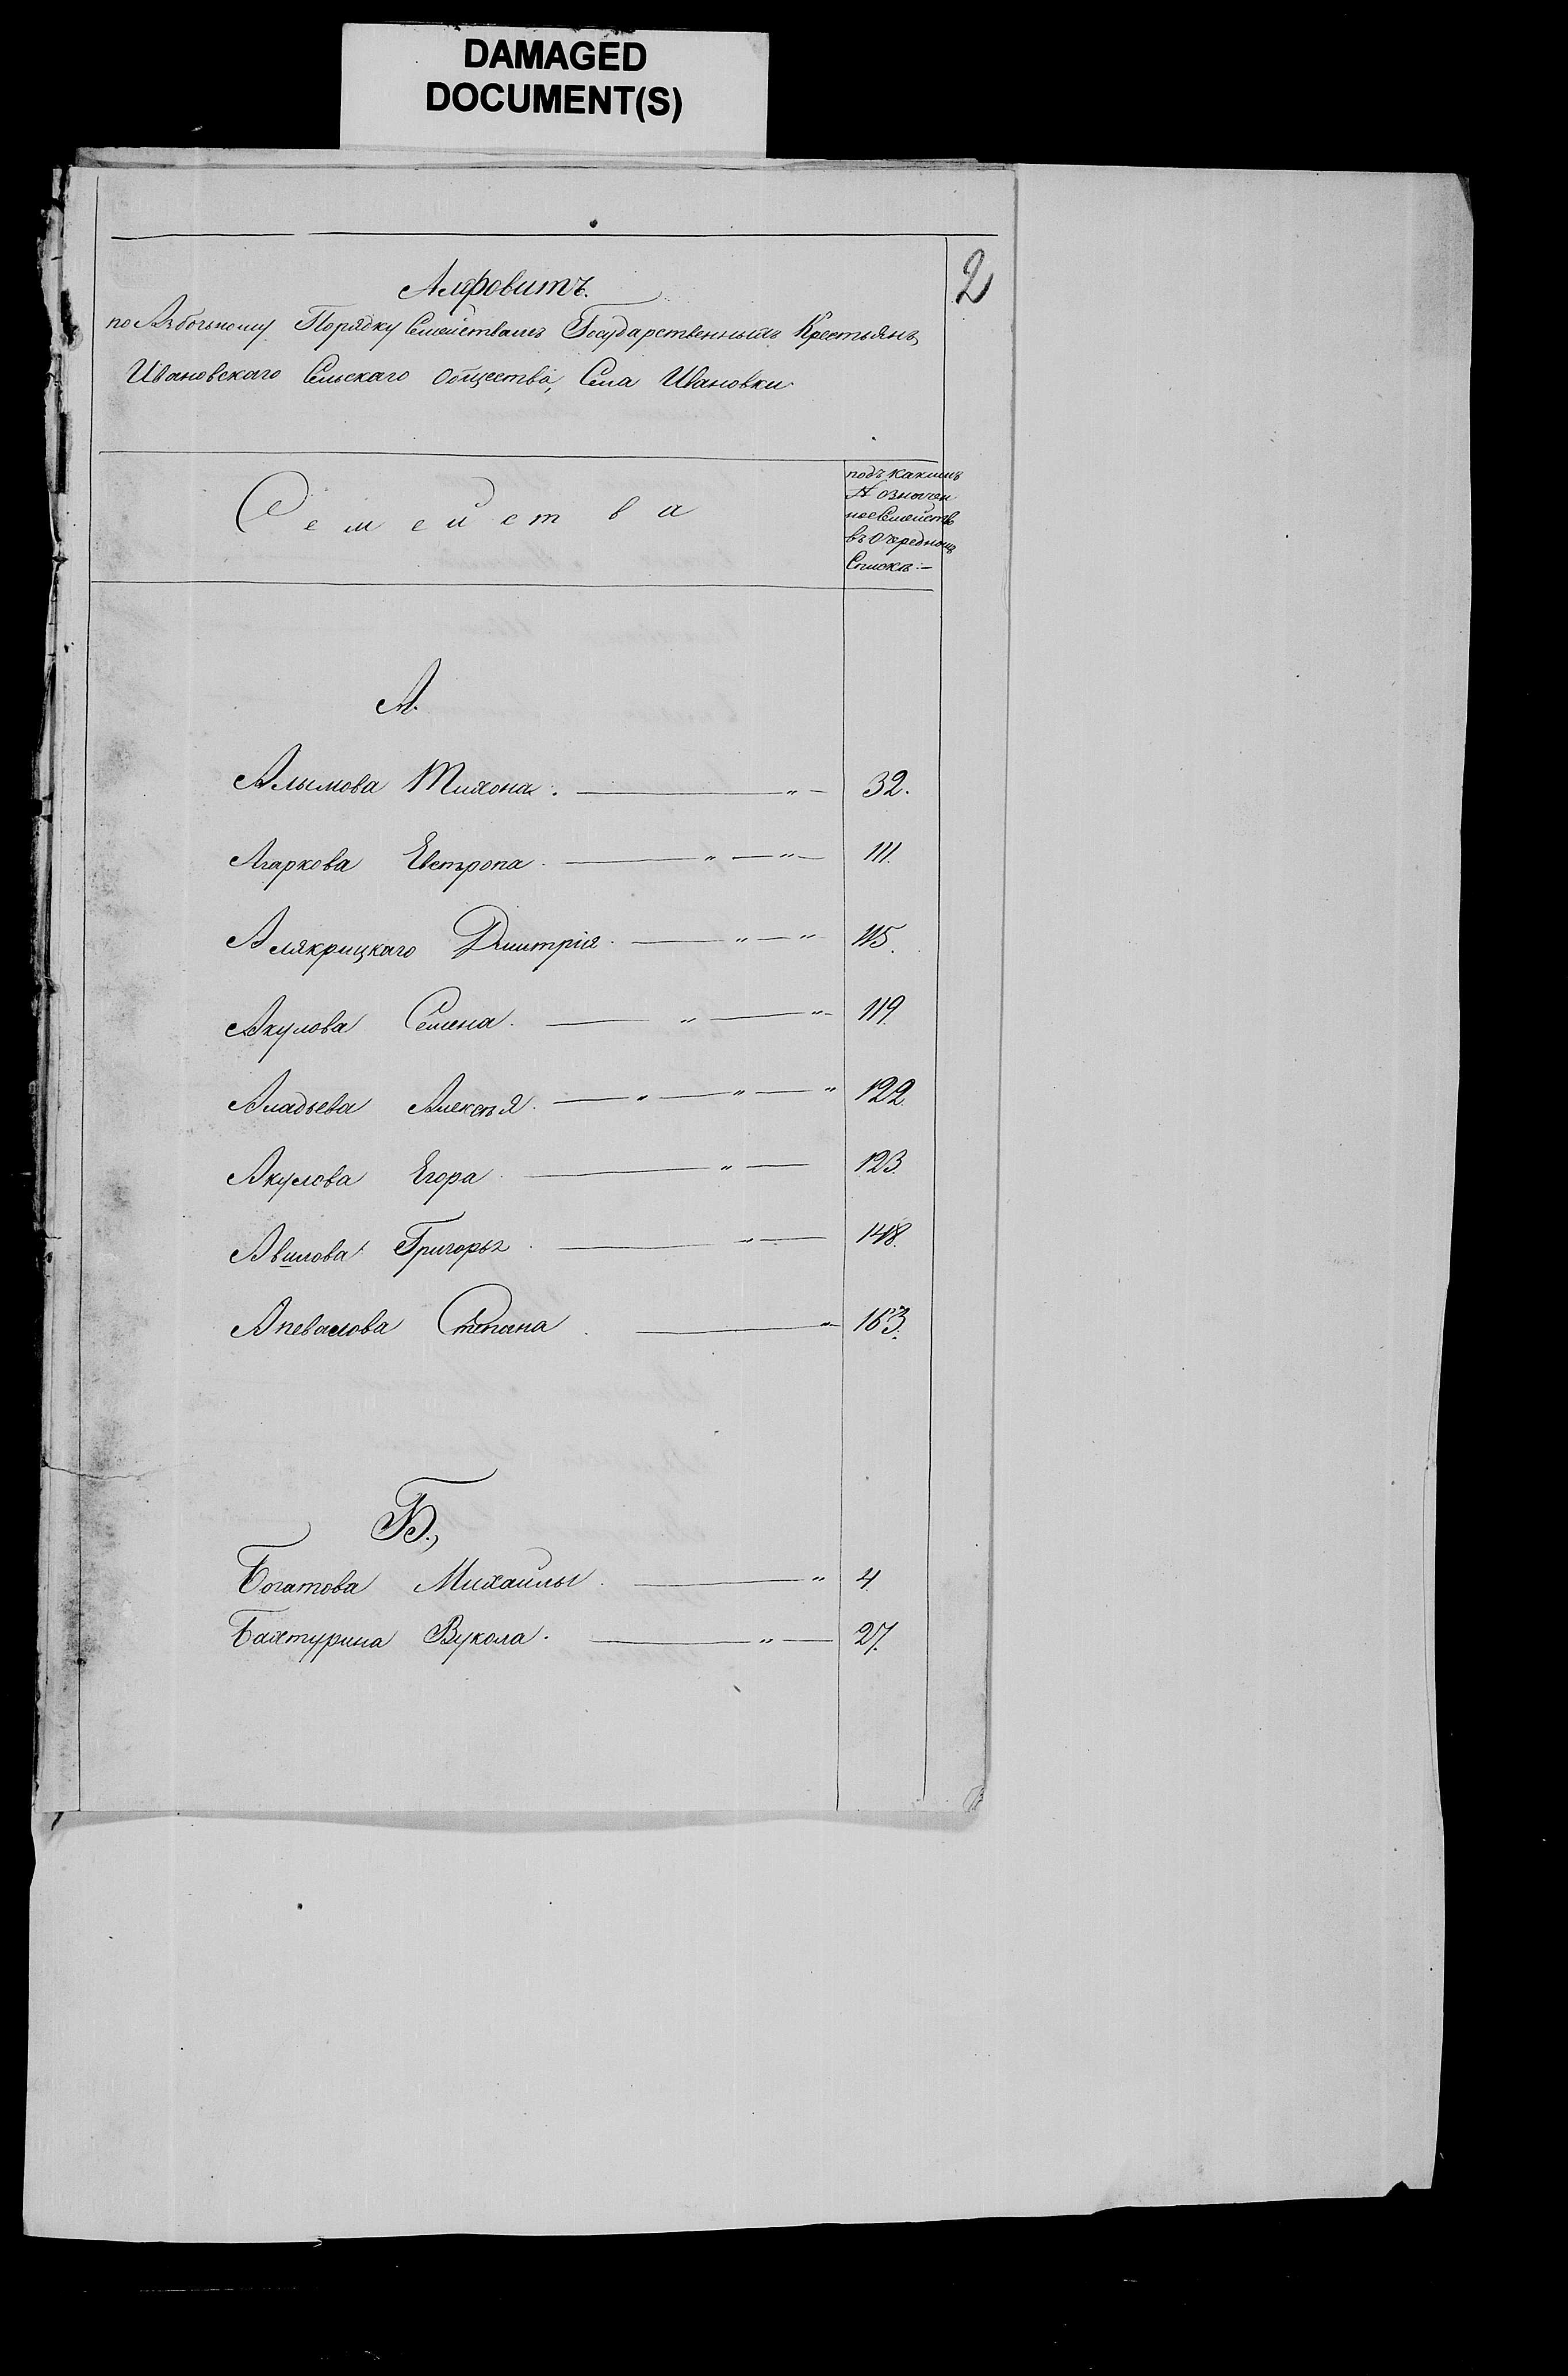 DAMAGED
DOCUMENT(S)
2
Алфовитъ.
по Азбочному Порядку Семействамъ Государственныхъ Крестьянъ
Ивановскаго Сельскаго Общества, Села Ивановки.
Семейства
подъ какимъ
№ означен
ное Семейств
въ Очередномъ
Спискѣ:—
А.
Алымова Тихона. — „ — 32.
Агаркова Евтропа. — „ — „ — 111.
Алякрицкаго Дмитрія. — „ — „ 115.
Акулова Семена. — „ — „ — 119.
Аладьева Алексѣя. — „ — „ — „ 122.
Акулова Егора. — „ — 123.
Авилова Григорья. — „ — 148.
Апевалова Степана. — „ — 163.
Б.,
Богатова Михайлы. — „ 4.
Бахтурина Вукола. — „ — 27.